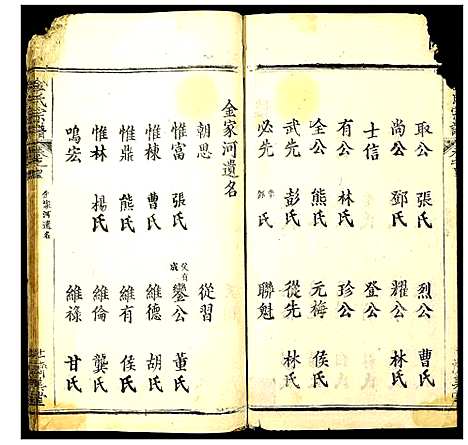 取公 張氏 烈公 曹氏
尚公 鄧氏 耀公 林氏
士信 登公
有公 林氏 珍公
全公 熊氏 元梅 侯氏
武先 彭氏 從先 林氏
必先 李氏 聯魁
金家河遺名
朝思 從習
惟富 張氏 鑾公 董氏
惟棟 曹氏 維德 胡氏
惟鼎 熊氏 維有 侯氏
惟林 楊氏 維倫 龔氏
鳴宏 維祿 甘氏
金氏宗譜
金家河遺名